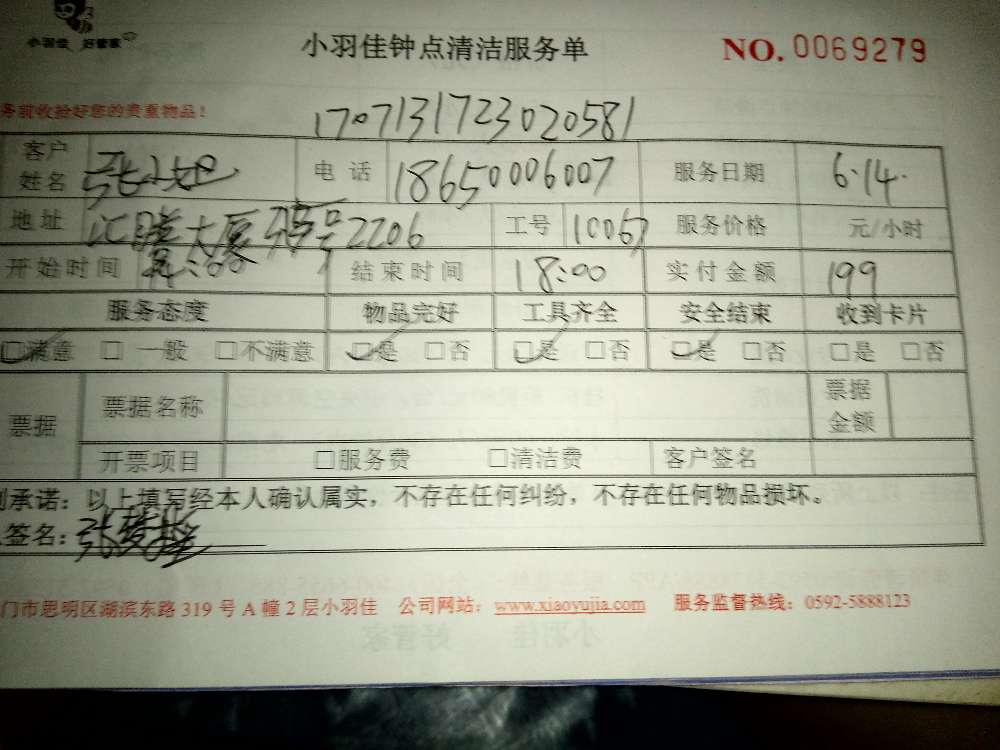 小羽佳 好管家
小羽佳钟点清洁服务单
NO. 0069279
务前收拾好您的贵重物品!
1707131723020581
客户姓名 张 电话 18650006007 服务日期 6.14.
地址 汇腾大厦 2206 工号 11006 服务价格 元/小时
开始时间 结束时间 18:00 实付金额 199
服务态度 物品完好 工具齐全 安全结束 收到卡片
☑满意 □ 一般 □不满意 ☑是 □否 ☑是 □否 ☑是 □否 □是 □否
票据 票据名称 票据金额
开票项目 □服务费 □清洁费 客户签名
承诺:以上填写经本人确认属实,不存在任何纠纷,不存在任何物品损坏。
签名:张
门市思明区湖滨东路 319 号 A 幢 2 层小羽佳 公司网站:www.xiaoyujia.com 服务监督热线:0592-5888123